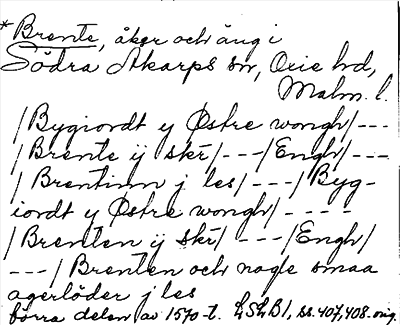 *Brente, åker och äng i
Södra Åkarps sn, Oxie hd,
Malm. l.
/Bygiordt y Østre wongh/---
/Brente ij skr/---/Engh/---
/Brentinn j les/---/Byg-
iordt y Østre wongh/----
/Brenten ij skr/ ---/Engh/
---/Brenten och nogle smaa
agerlöder j les
förra delen av 1570-t. LSLB1, ss. 407, 408. orig.